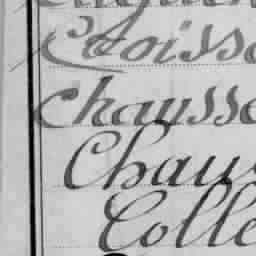 Choisse
Chausse
Chau
Colle